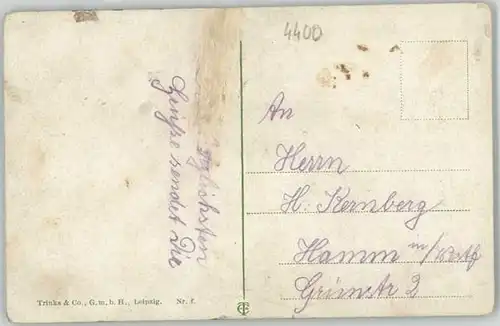 4400
herzlichsten
Grüße sendet Die
An
Herrn
H. Kernberg
Hamm in/Westf
Grünstr 3
Trinks & Co., G. m. b. H., Leipzig. Nr. f.